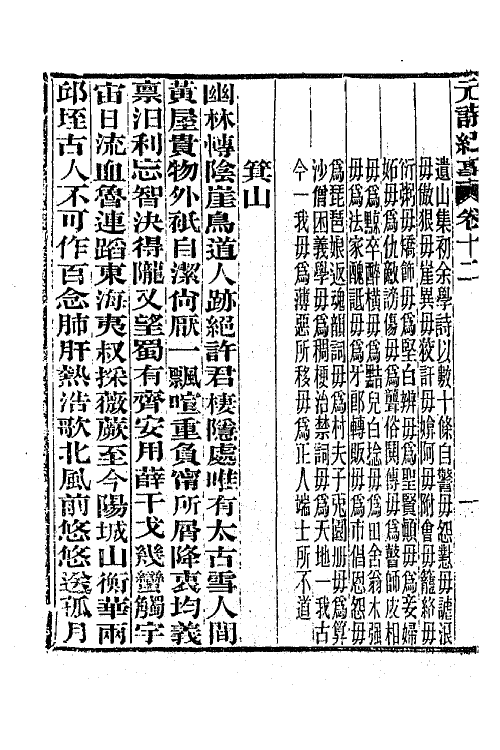 元詩紀事 卷十二
一
遺山集初余學詩以數十條自警毋怨懟毋謔浪
毋傲狠毋崖異毋狡訐毋媕阿毋附會毋籠絡毋
衒粥毋矯飾毋為堅白辨毋為聖賢顛毋為妾婦
妬毋為仇敵謗傷毋為聾俗鬨傳毋為瞽師皮相
毋為黥卒醉橫毋為黠兒白捻毋為田舍翁木强
毋為法家醜詆毋為牙郎轉販毋為市倡恩怨毋
為琵琶娘返魂韻詞毋為村夫子兎園册毋為算
沙僧困義學毋為稠梗治禁詞毋為天地一我古
今一我毋為薄惡所移毋為正人端士所不道
箕山
幽林轉陰崖鳥道人跡絕許君棲隱處唯有太古雪人間
黃屋貴物外衹自潔尙厭一飄喧重負甯所屑降衷均義
稟汨利忘智決得隴又望蜀有齊安用薛干戈幾蠻觸宇
宙日流血魯連蹈東海夷叔採薇蕨至今陽城山衡華兩
邱垤古人不可作百念肺肝熱浩歌北風前悠悠送孤月